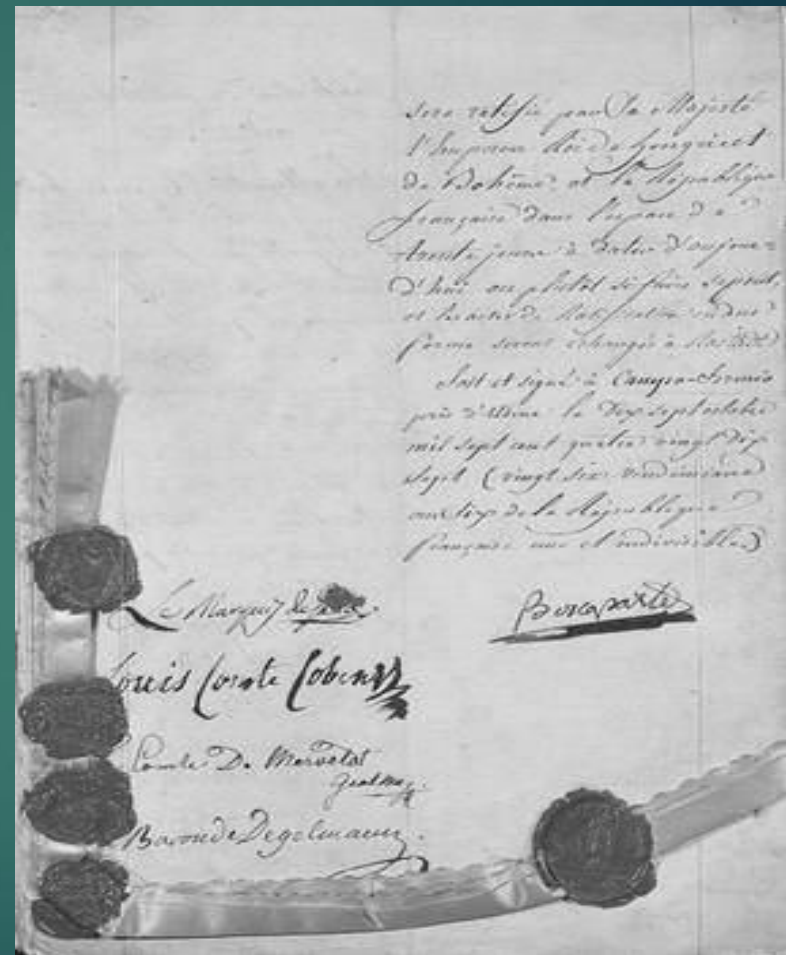 sera ratifié par Sa Majesté
l'Empereur Roi de Hongrie et
de Bohême et la République
française dans l'espace de
trente jours à dater d'aujour-
d'hui ou plutôt si faire se peut,
et les actes de Ratification en due
forme seront échangés à Rastadt
fait et signé à Campo-Formio
près d'Udine le Dix sept octobre
mil sept cent quatre vingt dix
sept (vingt six vendémiaire
an six de la République
française une et indivisible)
Le Marquis de
Bonaparte
Louis Comte Cobenzl
Comte De Merveldt
Baron de Degelmann